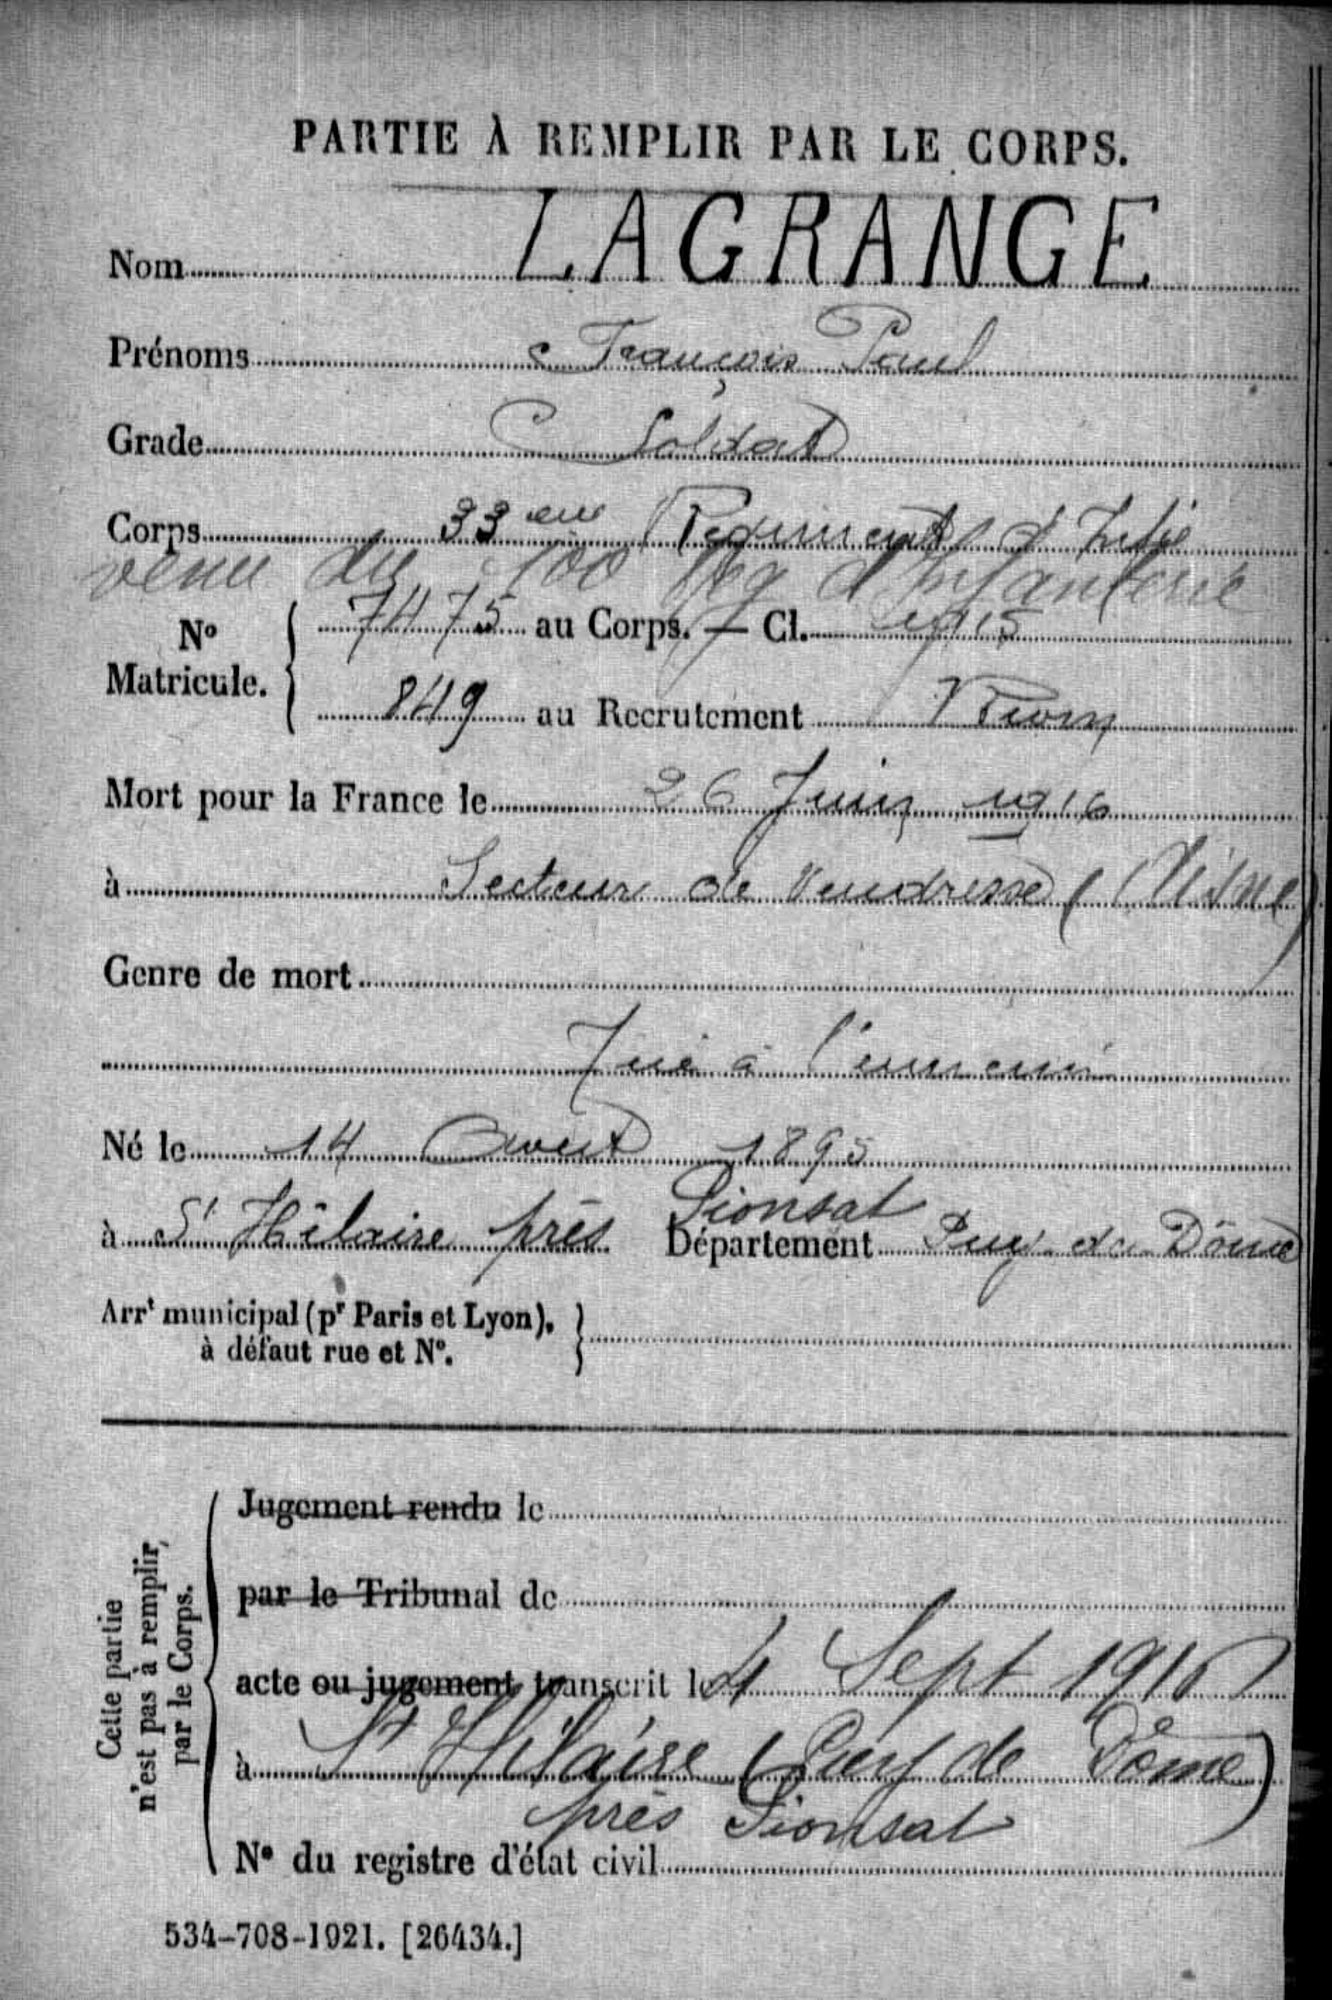 PARTIE À REMPLIR PAR LE CORPS.
Nom LAGRANGE
Prénoms François Paul
Grade Soldat
Corps 33 eme Régiment d'Infie
venu du 100 Reg d'Infanterie
No Matricule. { 7475 au Corps. — Cl. 1915
849 au Recrutement Riom
Mort pour la France le 26 Juin 1916
à Secteur de Vendresse (Aisne)
Genre de mort
Tué à l'ennemi
Né le 14 Aout 1895
à St Hilaire près Pionsat Département Puy de Dôme
Arrt municipal (pr Paris et Lyon), }
à défaut rue et No.
Cette partie
n'est pas à remplir
par le Corps.
Jugement rendu le
par le Tribunal de
acte ou jugement transcrit le 4 Sept 1916
à St Hilaire (Puy de Dôme)
près Pionsat
No du registre d'état civil
534-708-1921. [26434.]